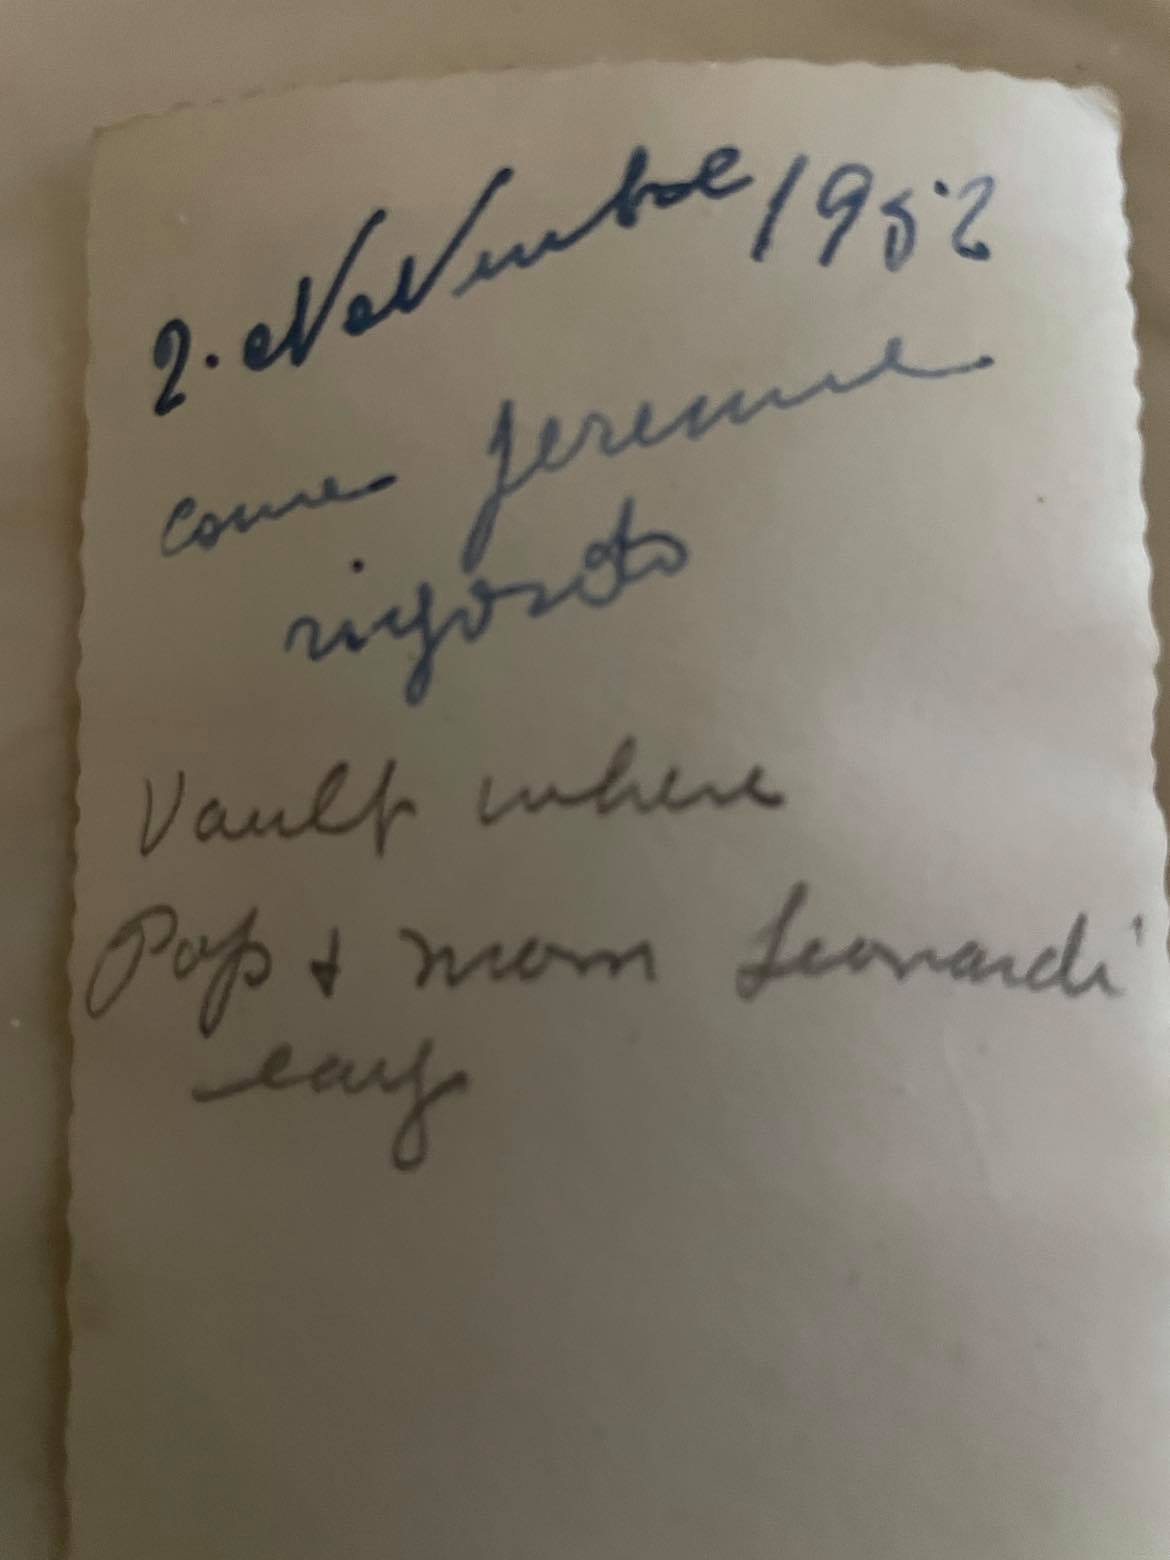 2. NoVembre 1952
come Jeremme
riyosto
Vault where
Pop & mom Leonardi
lay